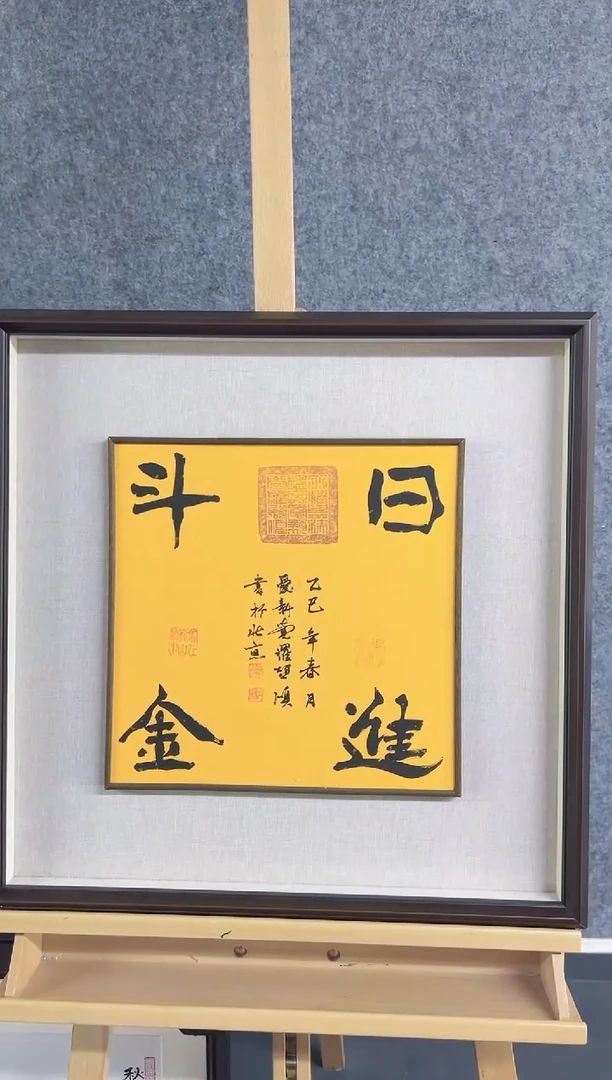 日進
斗金
乙巳年春月
愛新覺羅
書於北京
秋